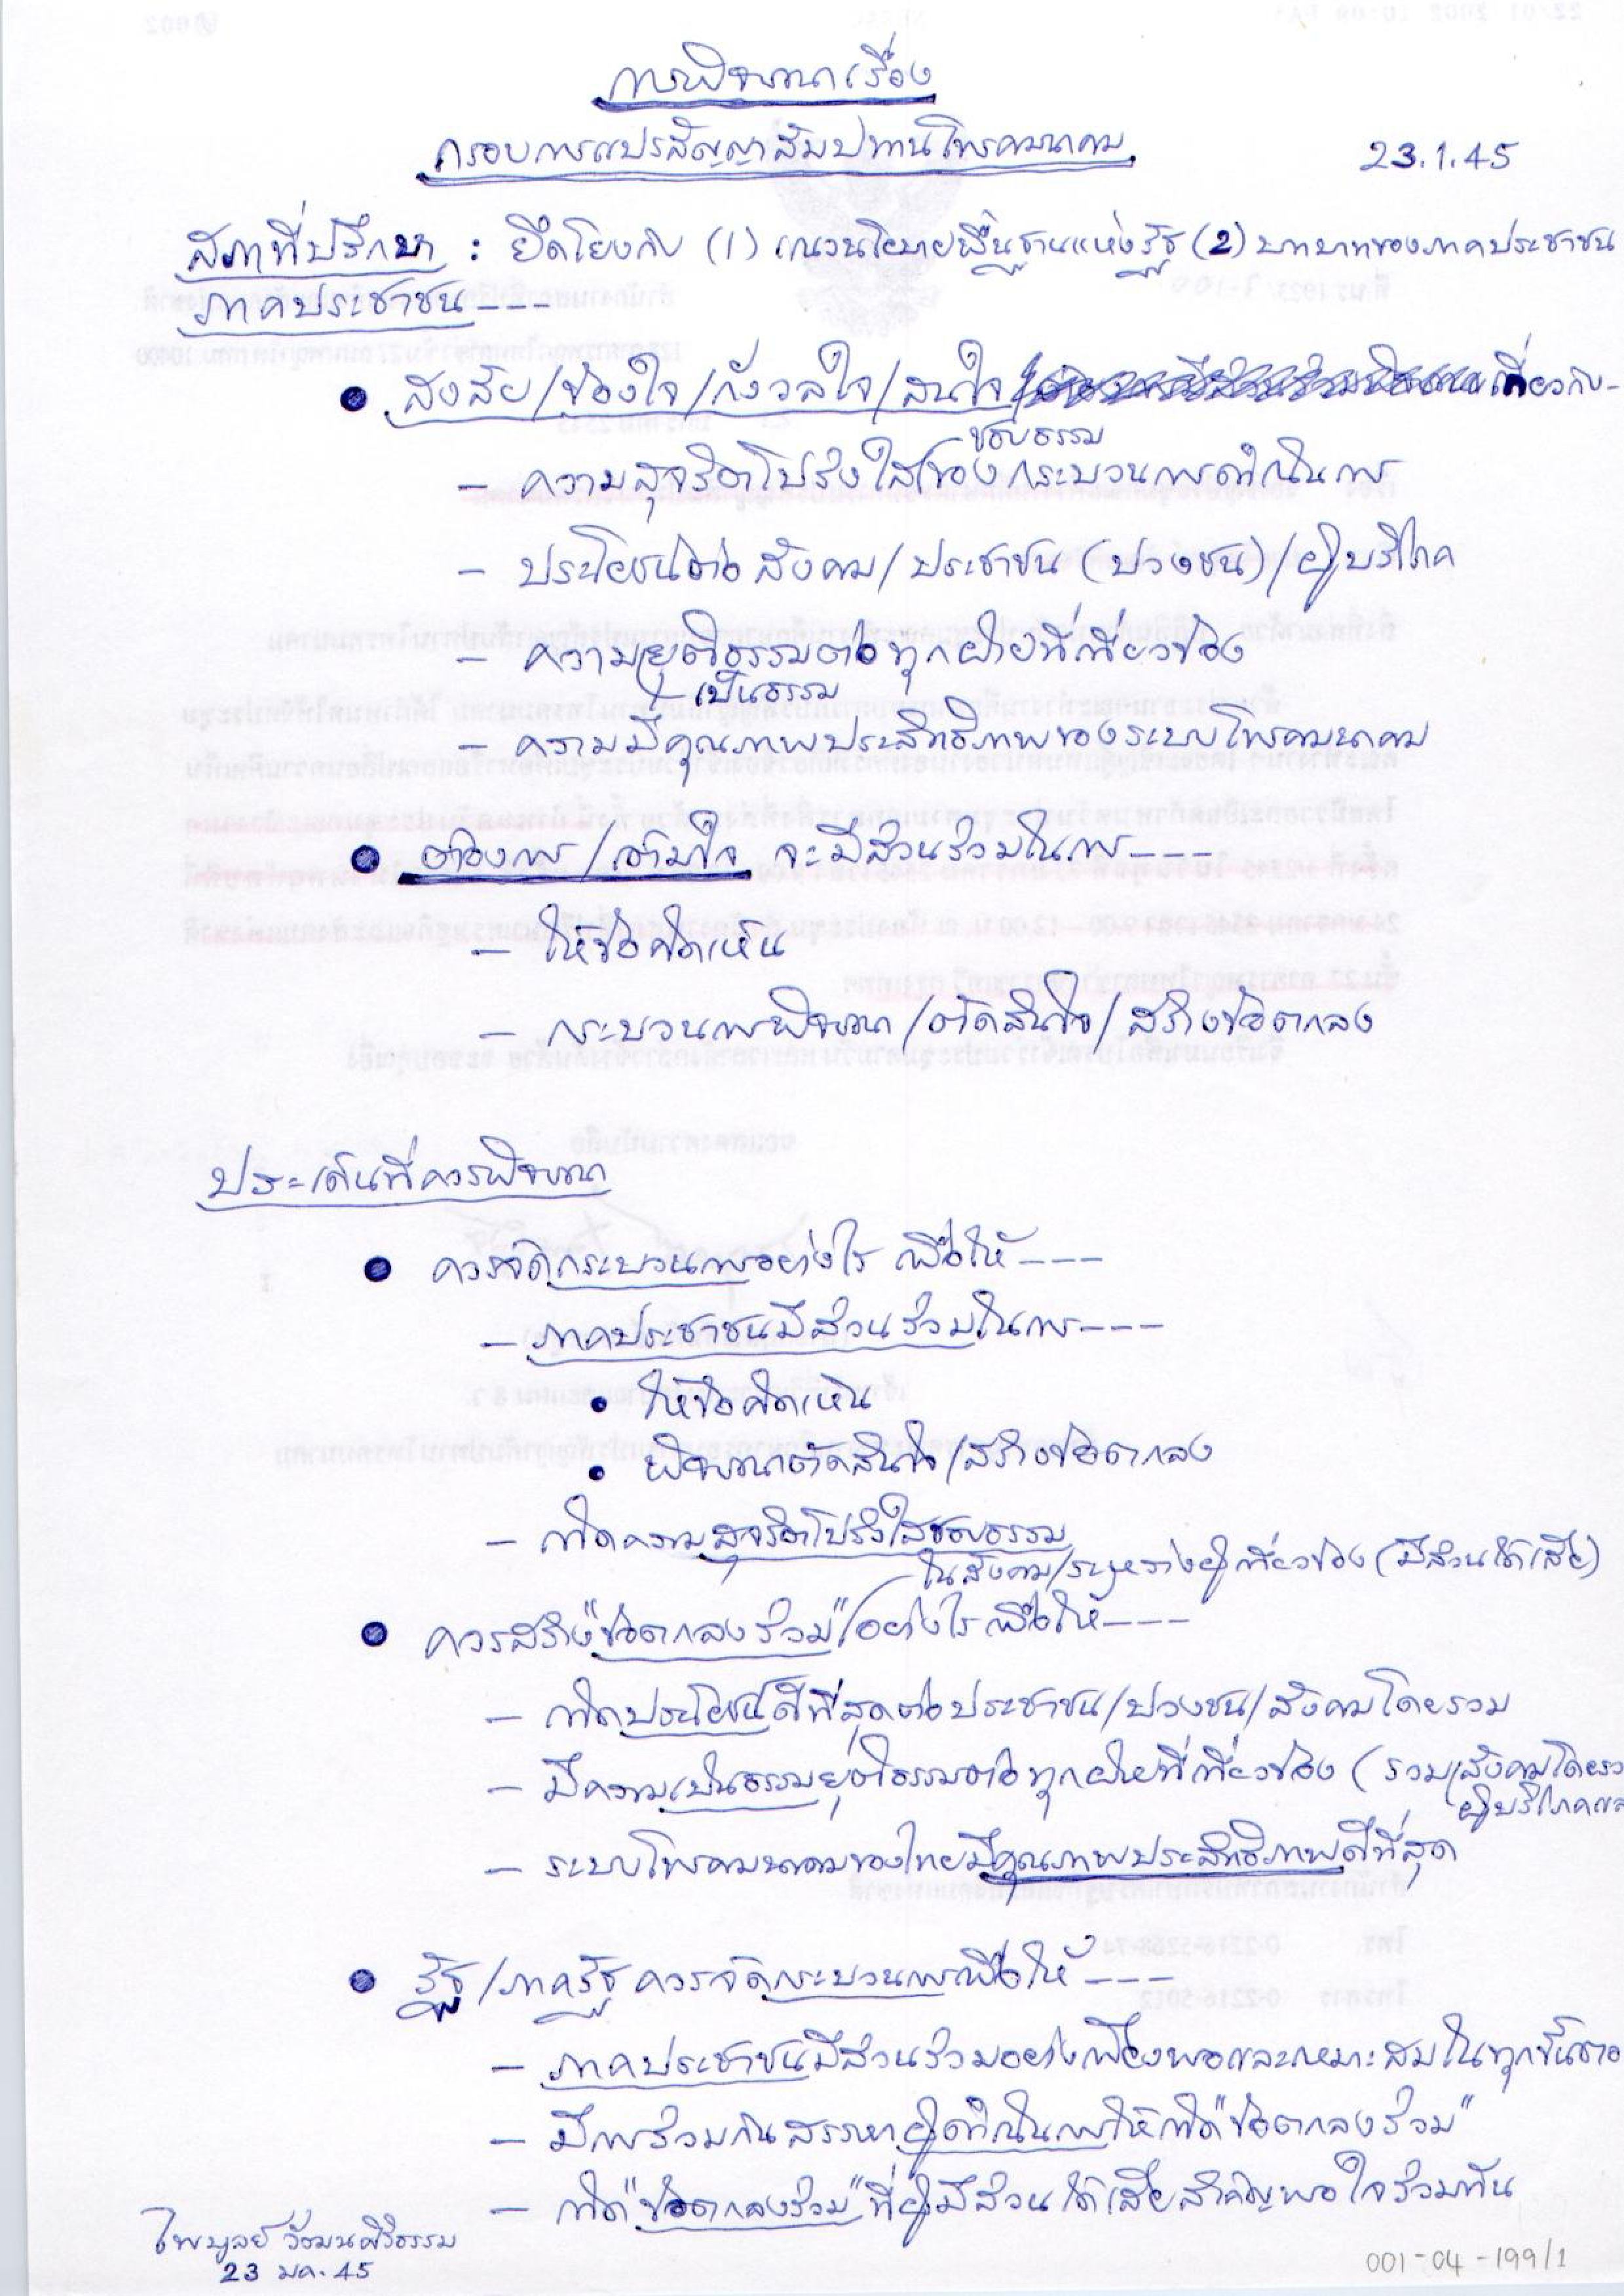 การพิจารณาเรื่อง
กรอบการแปรสัญญาสัมปทานโทรคมนาคม
23.1.45
สภาที่ปรึกษา : ยึดโยงกับ (1) แนวนโยบายพื้นฐานแห่งรัฐ (2) บทบาทของภาคประชาชน
ภาคประชาชน---
● สงสัย/ข้องใจ/กังวลใจ/สนใจ/ เกี่ยวกับ-
ชอบธรรม
- ความสุจริตโปร่งใส/ของกระบวนการดำเนินการ
- ประโยชน์ต่อสังคม/ประชาชน (ปวงชน)/ผู้บริโภค
- ความยุติธรรมต่อทุกฝ่ายที่เกี่ยวข้อง
เป็นธรรม
- ความมีคุณภาพประสิทธิภาพของระบบโทรคมนาคม
● ต้องการ/เต็มใจ จะมีส่วนร่วมในการ---
- ให้ข้อคิดเห็น
- กระบวนการพิจารณา/ตัดสินใจ/สร้างข้อตกลง
ประเด็นที่ควรพิจารณา
● ควรจัดกระบวนการอย่างไร เพื่อให้---
- ภาคประชาชนมีส่วนร่วมในการ---
• ให้ข้อคิดเห็น
• พิจารณาตัดสินใจ/สร้างข้อตกลง
- เกิดความสุจริตโปร่งใสชอบธรรม
ในสังคม/ระหว่างผู้เกี่ยวข้อง (มีส่วนได้เสีย)
● ควรสร้าง "ข้อตกลงร่วม" อย่างไรเพื่อให้---
- เกิดประโยชน์ดีที่สุดต่อประชาชน/ปวงชน/สังคมโดยรวม
- มีความเป็นธรรมยุติธรรมต่อทุกฝ่ายที่เกี่ยวข้อง (รวมสังคมโดยรว
ผู้บริโภคแล
- ระบบโทรคมนาคมของไทยมีคุณภาพประสิทธิภาพดีที่สุด
● รัฐ/ภาครัฐ ควรจัดกระบวนการเพื่อให้---
- ภาคประชาชนมีส่วนร่วมอย่างเพียงพอและเหมาะสมในทุกขั้นตอ
- มีการร่วมกันสรรหาผู้ดำเนินการให้เกิด "ข้อตกลงร่วม"
- เกิด "ข้อตกลงร่วม" ที่ผู้มีส่วนได้เสียสำคัญพอใจร่วมกัน
ไพบูลย์ วัฒนศิริธรรม
23 มค. 45
001-04-199/1